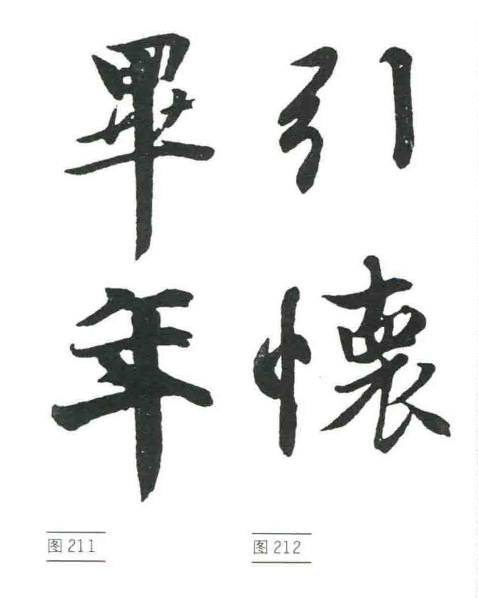 畢年
引懷
图211
图212